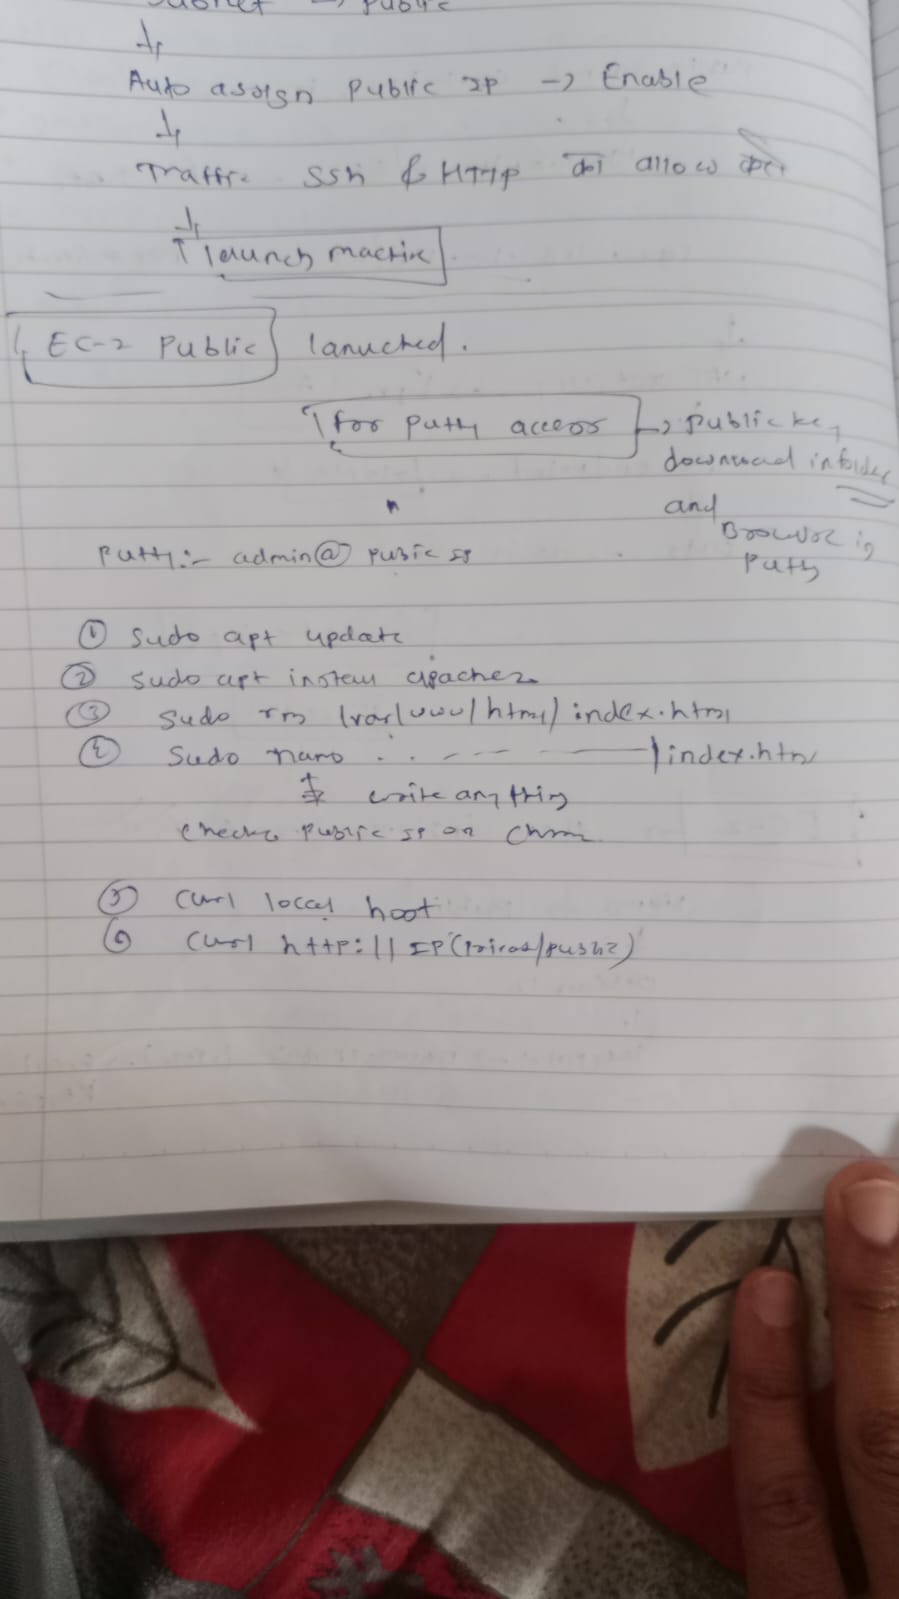 Subnet → public
Auto assign Public IP → Enable
Traffic SSH & HTTP को allow कर
launch machine
EC-2 Public lanuched.
for putty access → public key
download in folder
and
Browse in
Putty
Putty:- admin@ pubic IP
① sudo apt update
② sudo apt install apache2
③ sudo rm /var/www/html/index.html
④ sudo nano .. - - — /index.htm
write anything
check public IP on Chrome
⑤ curl local host
⑥ curl http:// IP (private/public)